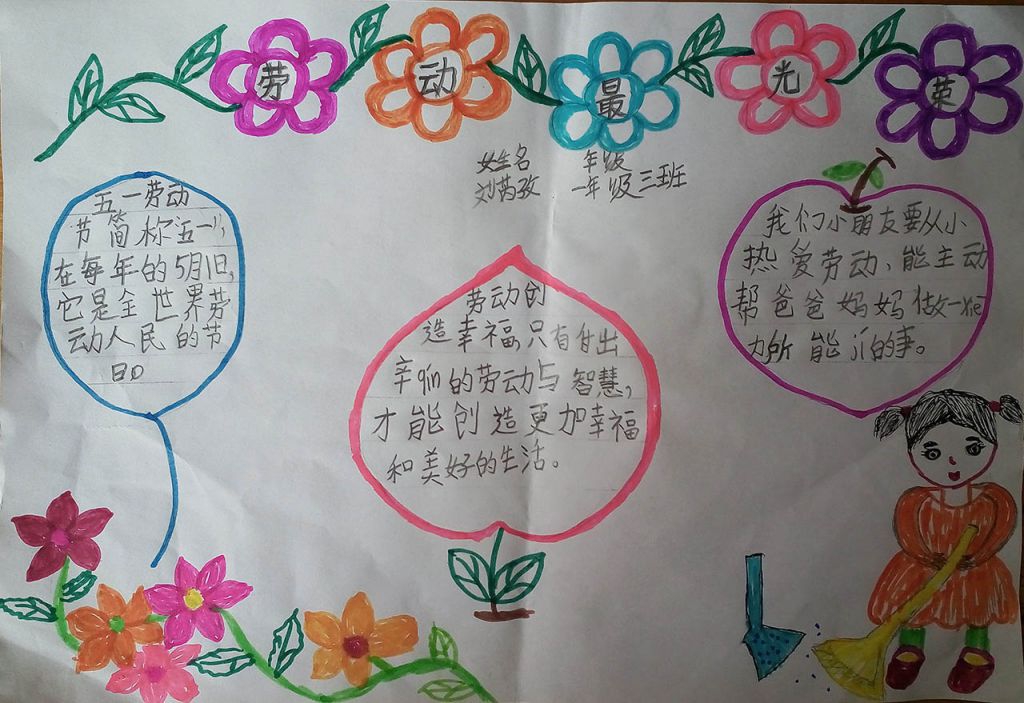 劳动最光荣
女生名 年级
刘芮孜 一年级三班
五一劳动
节简称“五一”,
在每年的5月1日,
它是全世界劳
动人民的节
日。
劳动创
造幸福,只有付出
辛qin的劳动与智慧,
才能创造更加幸福
和美好的生活。
我们小朋友要从小
热爱劳动、能主动
帮爸爸妈妈做一些
力所能ji的事。